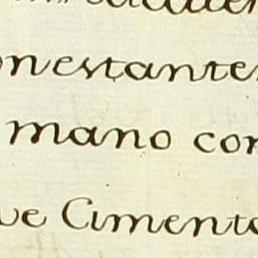 onestante
mano con
ve Cimento